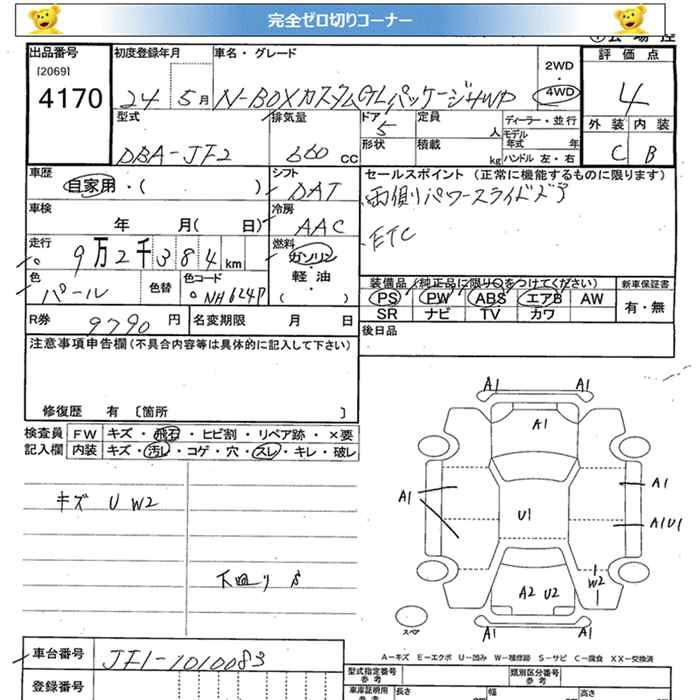 完全ゼロ切りコーナー
出品番号 初度登録年月 車名・グレード 評価点
[2069] 2WD
4170 24 5月 N-BOXカスタムGLパッケージ4WD ・ 4WD 4
型式 排気量 ドア 定員 ディーラー・並行 外装 内装
DBA-JF2 660 cc 5 人 モデル年式 年
形状 積載 kg ハンドル 左・右 C B
車歴 シフト セールスポイント(正常に機能するものに限ります)
自家用・( ) DAT 両側パワースライドドア
車検 冷房
年 月( 日) AAC ETC
走行 燃料
9万2千384km ガソリン
色 色替 色コード 軽・油
パール NH624P ( )
装備品(純正品に限り○をつけてください) 新車保証書
PS PW ABS エアB AW 有・無
SR ナビ TV カワ
R券 9790 円 名変期限 月 日 後日品
注意事項申告欄(不具合内容等は具体的に記入して下さい)
修復歴 有 [箇所 ]
検査員 FW キズ・飛石・ヒビ割・リペア跡・×要
記入欄 内装 キズ・汚レ・コゲ・穴・スレ・キレ・破レ
A1 A1
A1
A1 A1
キズ U W2
U1 A1U1
下回り S
W2
A2 U2
スペア
A1 A1
A-キズ E-エクボ U-凹み W-補修跡 S-サビ C-腐食 XX-交換済
車台番号 JF1-1010083
型式指定番号 参考 類別区分番号 参考
登録番号 車庫証明用 参考 長さ 幅 高さ